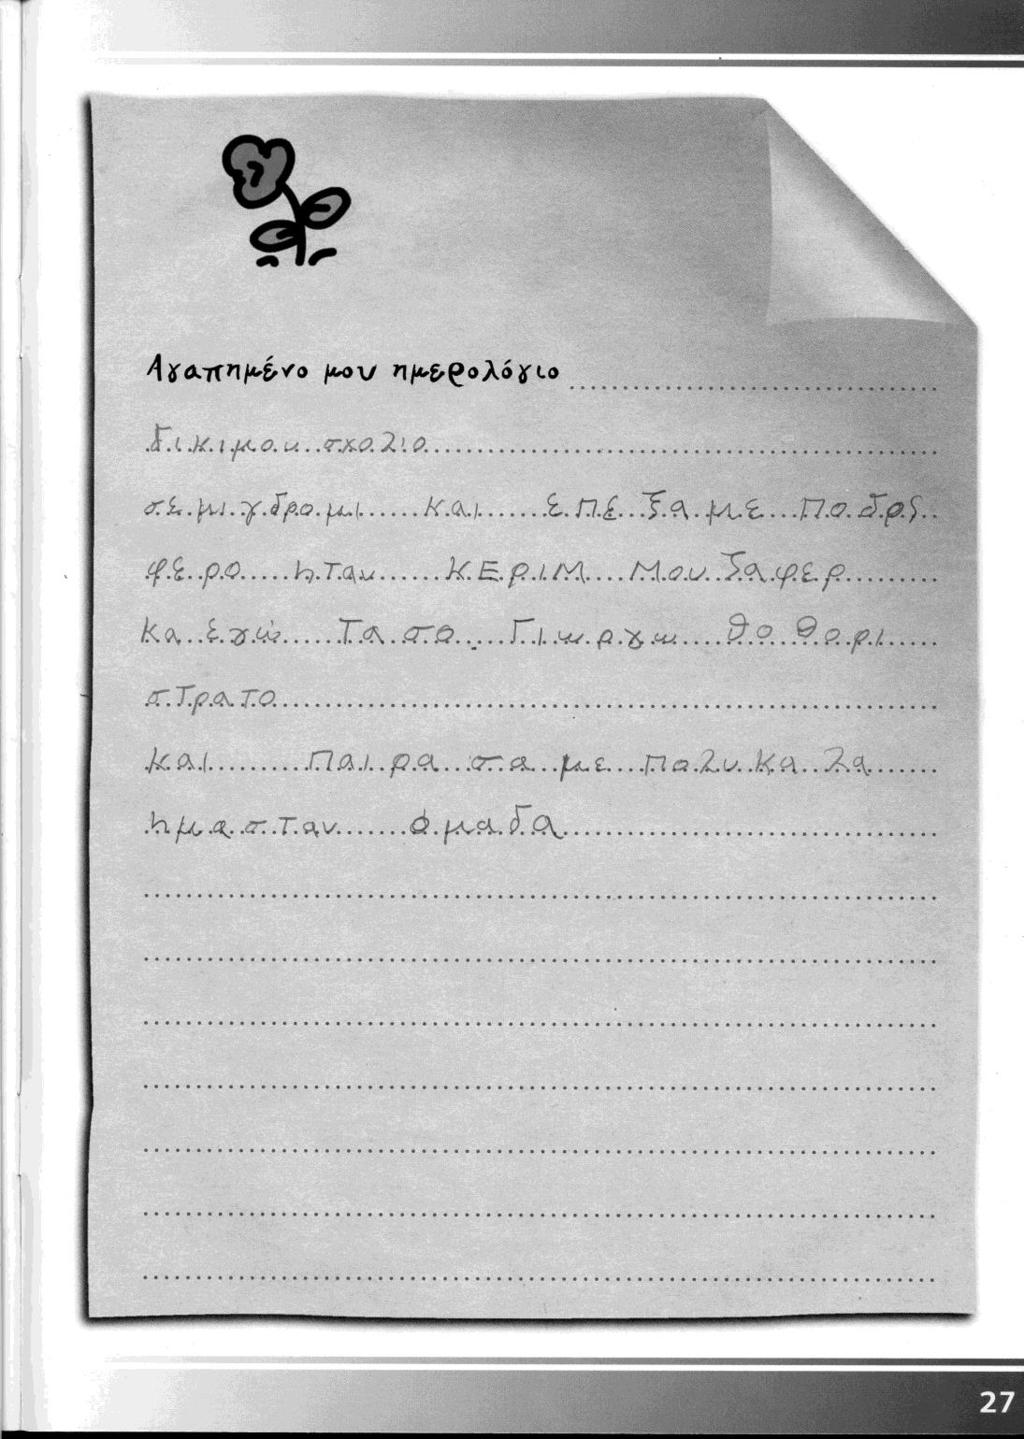 Αγαπημένο μου ημερολόγιο
δικιμου σχολιο
σε μιγδρομι και επεξαμε Ποδρς
φερο ηταν ΚΕριΜ Μουζαφερ
Κα εγώ Τασο Γιωργω θοθορι
σΤρατο
και Παιρασαμε πολυ Καλα
ημασταν όμαδα
27